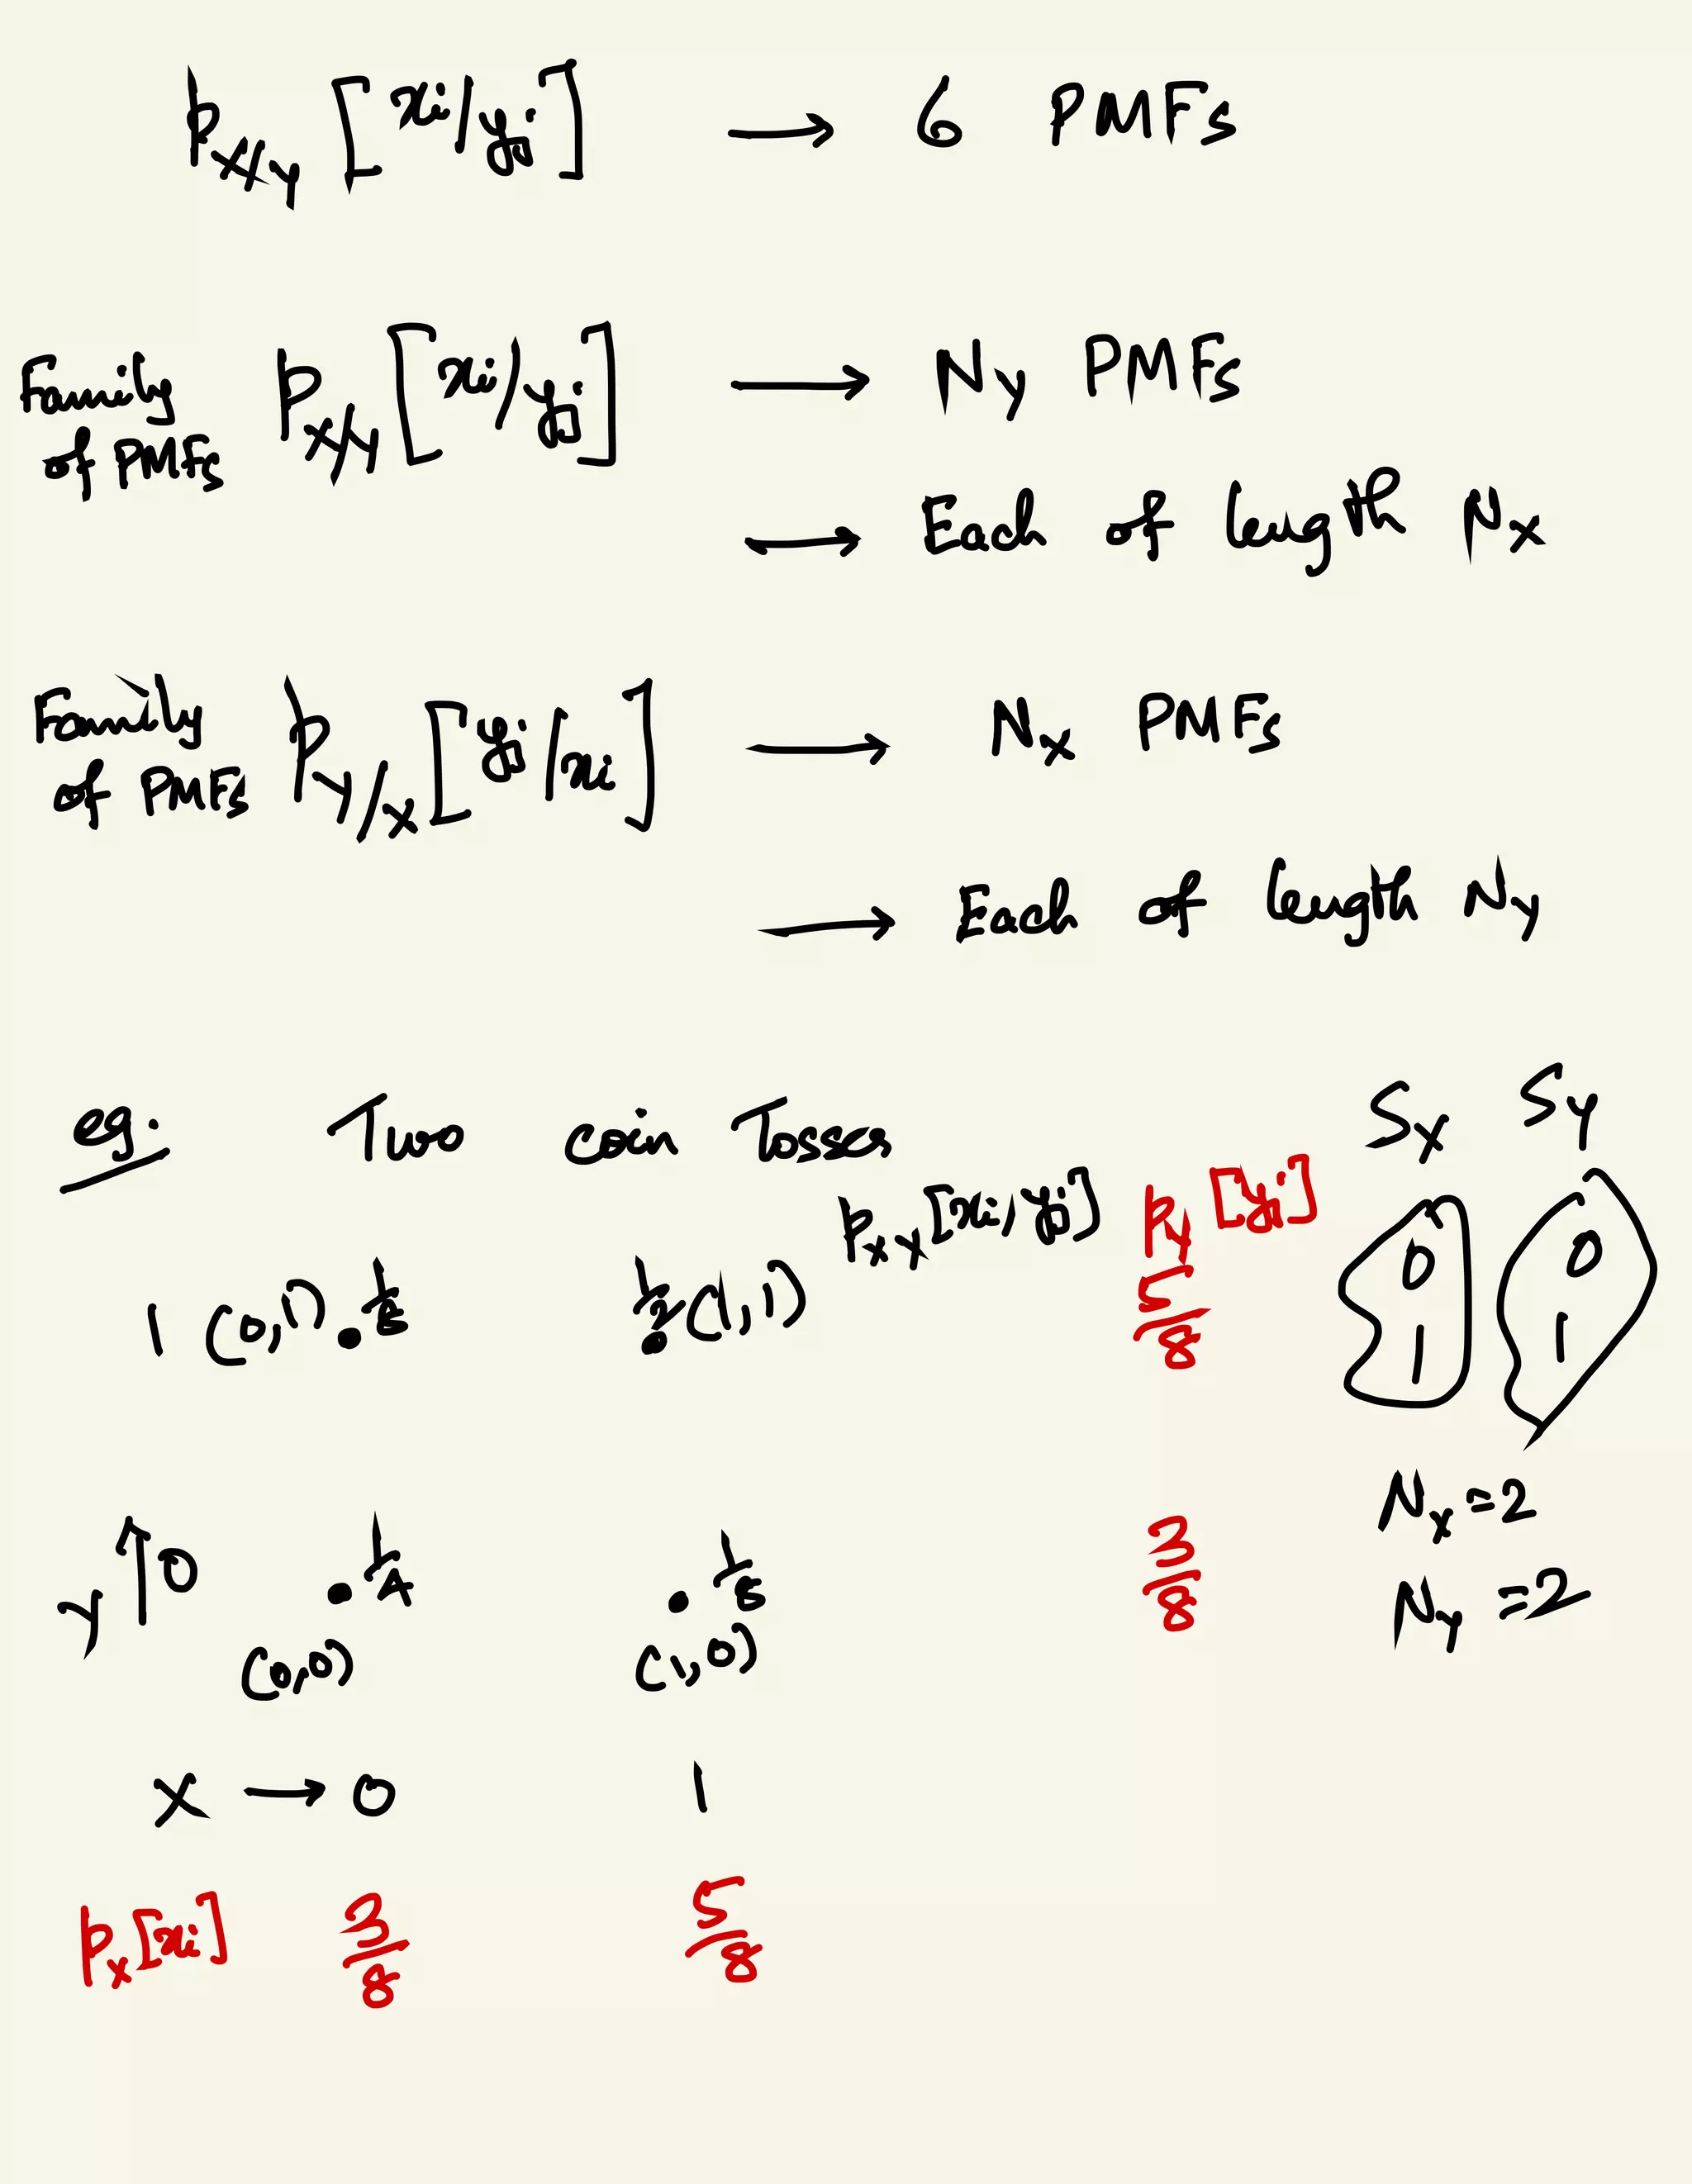 p_{X/Y} [x_i/y_j] → 6 PMFs
Family of PMFs p_{X/Y} [x_i/y_j] → N_Y PMFs
→ Each of length N_X
Family of PMFs p_{Y/X} [y_j/x_i] → N_X PMFs
→ Each of length N_Y
eg: Two coin Tosses S_X S_Y
p_{XY}[x_i, y_j] p_Y[y_j]
1 (0,1) . 1/8 1/2 . (1,1) 5/8 0 0
1 1
N_X = 2
Y ↑ 0 . 1/4 . 1/8 3/8
N_Y = 2
(0,0) (1,0)
X → 0 1
p_X[x_i] 3/8 5/8